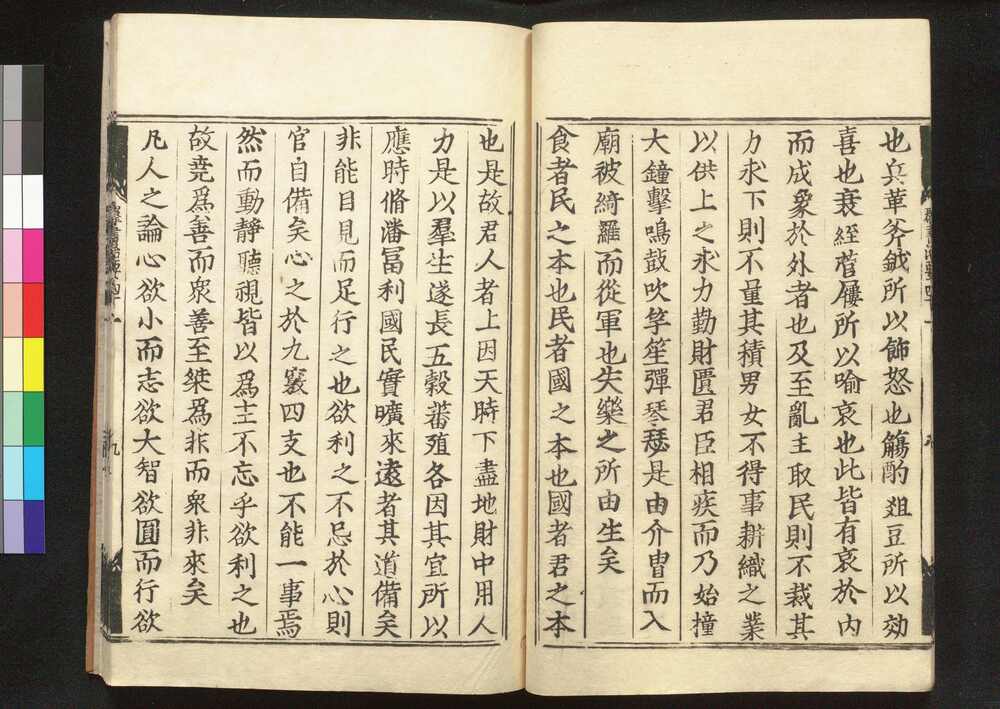 也兵革斧鉞所以飾怒也觴酌爼豆所以効
喜也衰絰菅屨所以喻哀也此皆有哀於内
而成象於外者也及至亂主取民則不裁其
力求下則不量其積男女不得事耕織之業
以供上之求力勤財匱君臣相疾而乃始撞
大鐘擊鳴鼓吹竽笙彈琴瑟是由介胄而入
廟被綺羅而從軍也失樂之所由生矣
食者民之本也民者國之本也國者君之本
也是故君人者上因天時下盡地財中用人
力是以羣生遂長五穀蕃殖各因其宜所以
應時脩潘冨利國民實曠來遠者其道備矣
非能目見而足行之也欲利之不忘於心則
官自備矣心之於九竅四支也不能一事焉
然而動静聽視皆以爲主不忘乎欲利之也
故尭爲善而衆善至桀爲非而衆非來矣
凡人之論心欲小而志欲大智欲圓而行欲